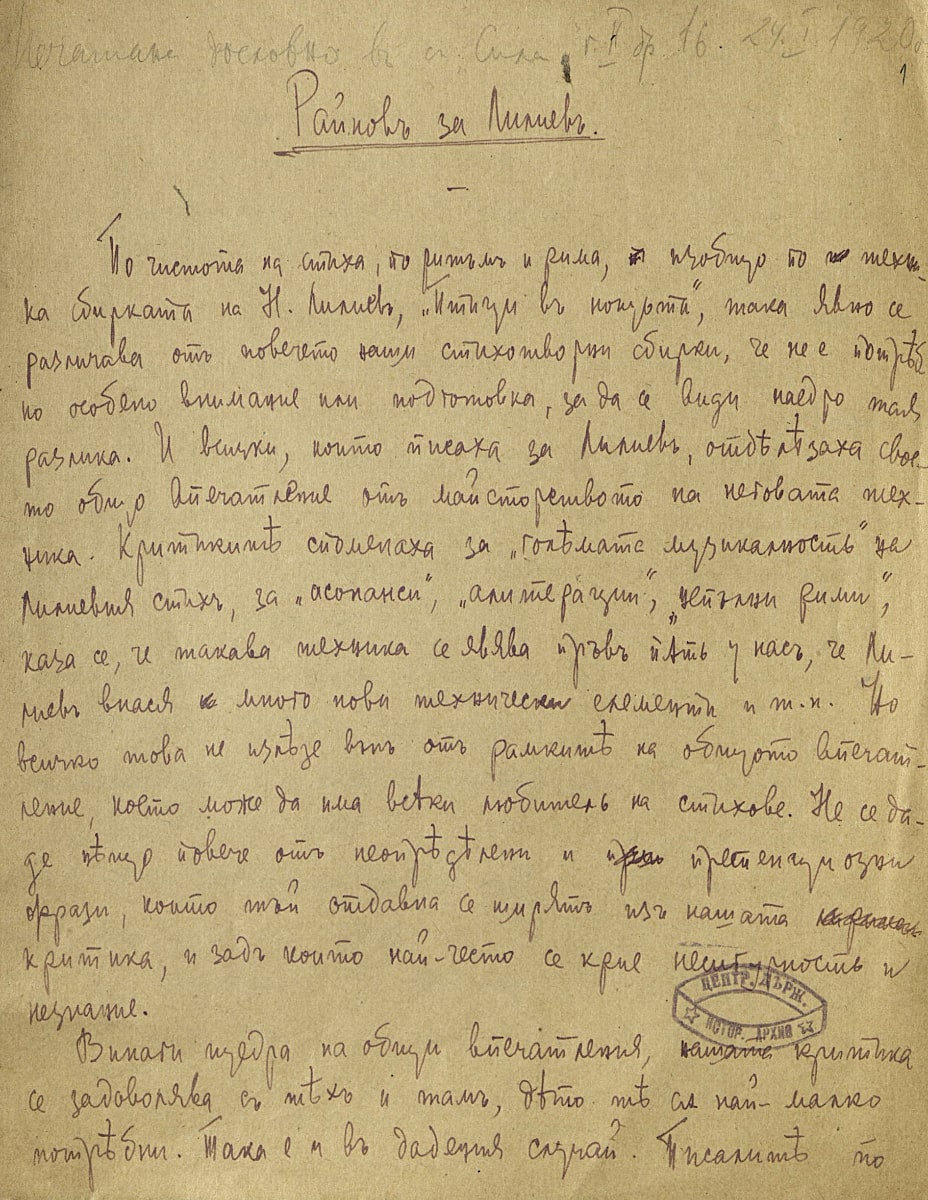 Печатана дословно въ с. Сила, г. II бр 16. 24.I 1920
1
Райновъ за Лилиевъ.
По чистота на стиха, по ритъмъ и рима, изобщо по техни-
ка сбирката на Н. Лилиевъ, „Птици въ нощьта", така явно се
различава отъ повечето наши стихотворни сбирки, че не е потрѣб
но особено внимание или подготовка, за да се види наедро тая
разлика. И всички, които писаха за Лилиевъ, отбѣлѣзаха свое-
то общо впечатление отъ майсторството на неговата тех-
ника. Критикитѣ споменаха за „голѣмата музикалность" на
Лилиевия стихъ, за „асонанси", „алитерации", „непълни рими",
каза се, че такава техника се явява пръвъ пѫть у насъ, че Ли-
лиевъ внася много нови технически елементи и т.н. Но
всичко това не излѣзе вънъ отъ рамкитѣ на общото впечат-
ление, което може да има всѣки любитель на стихове. Не се да-
де нѣщо повече отъ неопрѣдѣлени и претенциозни
фрази, които тъй отдавна се ширятъ изъ нашата
критика, и задъ които най-често се крие несигурность и
незнание.
ЦЕНТР. ДЪРЖ.
ИСТОР. АРХИВ
Винаги щедра на общи впечатления, нашата критика
се задоволява съ тѣхъ и тамъ, дѣто тѣ сѫ най-малко
потрѣбни. Така е и въ дадения случай. Писалитѣ по